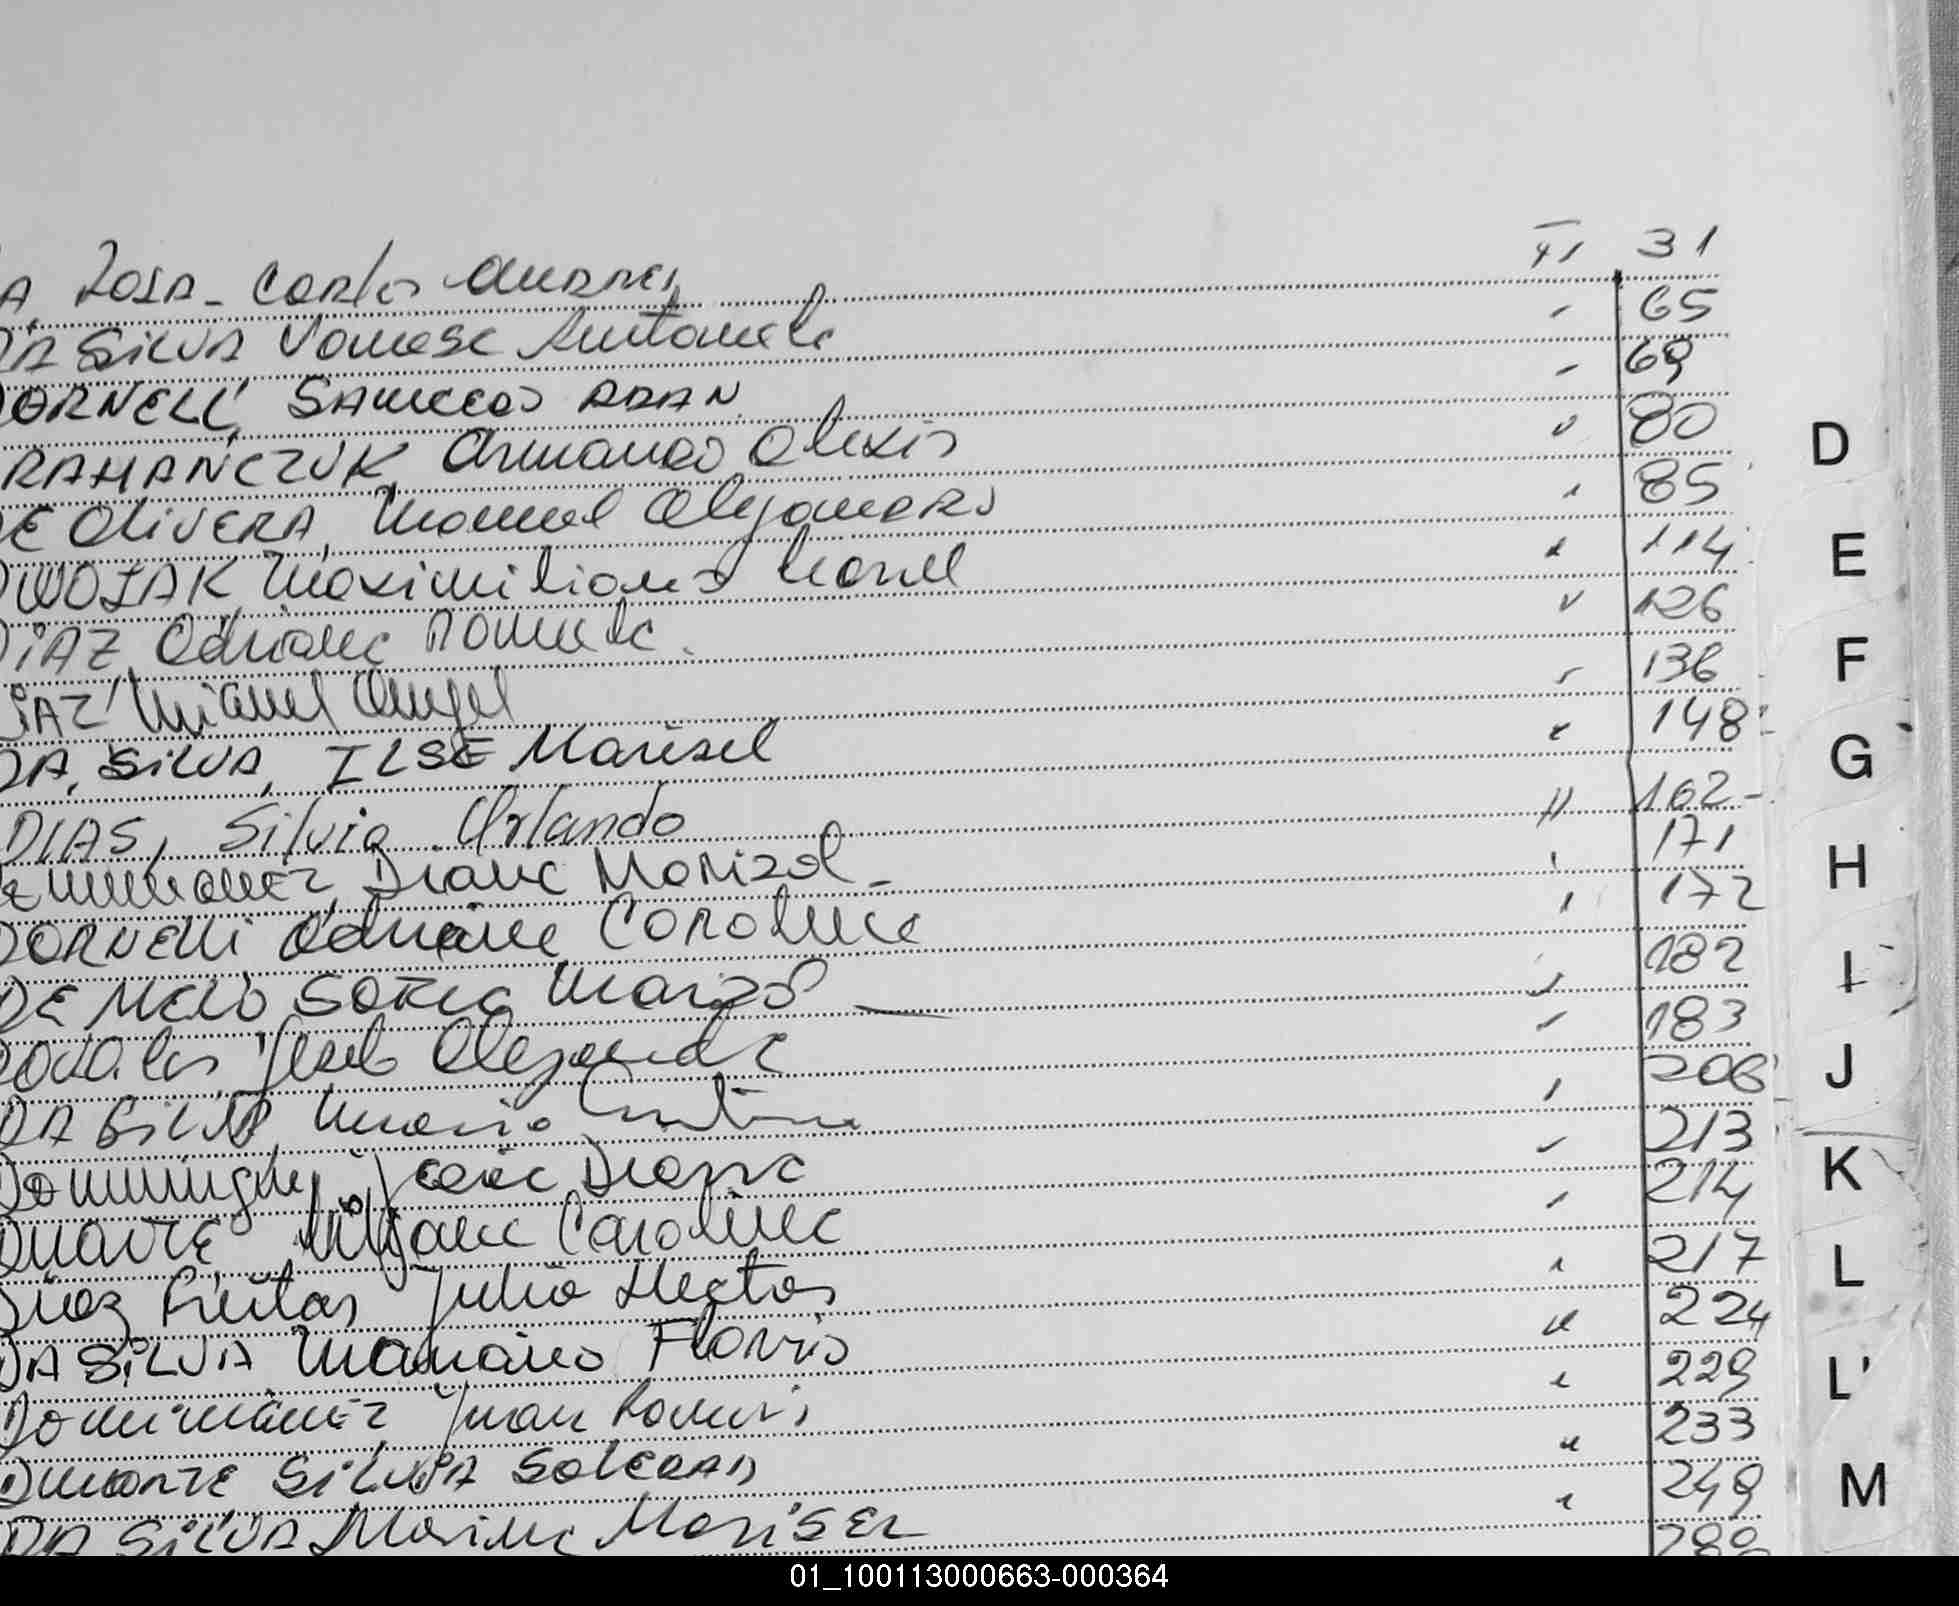 A ROSA Carlos Andres TI 31
DA SILVA Vanesa Antonela 65
DORNELL, SAMUEL ADAN 69
RAMANCZUK Armando Alexis 80
DE OLIVERA, Manuel Alejandro 85
DWOJAK Maximiliano Leonel 114
DIAZ Adriana 126
DIAZ Miguel Angel 136
DA SILVA, ILSE Marisel 148
DIAS, Silvio Orlando " 162
Diana Marizol 171
DORNELLI Adriana Carolina 172
DE MELO SONIA Marizol 182
Alejandra 183
DA SILVA Maria Cristina 206
Diana 213
DUARTE Carolina 214
Diaz Freitas Julio Hector 217
DA SILVA Mariano Florris 224
Dominguez Juan Ramon 229
DUARTE SILVIA SOLEDAD 233
DA SILVA Marina MARISEL 249
D
E
F
G
H
I
J
K
L
L'
M
01_100113000663-000364